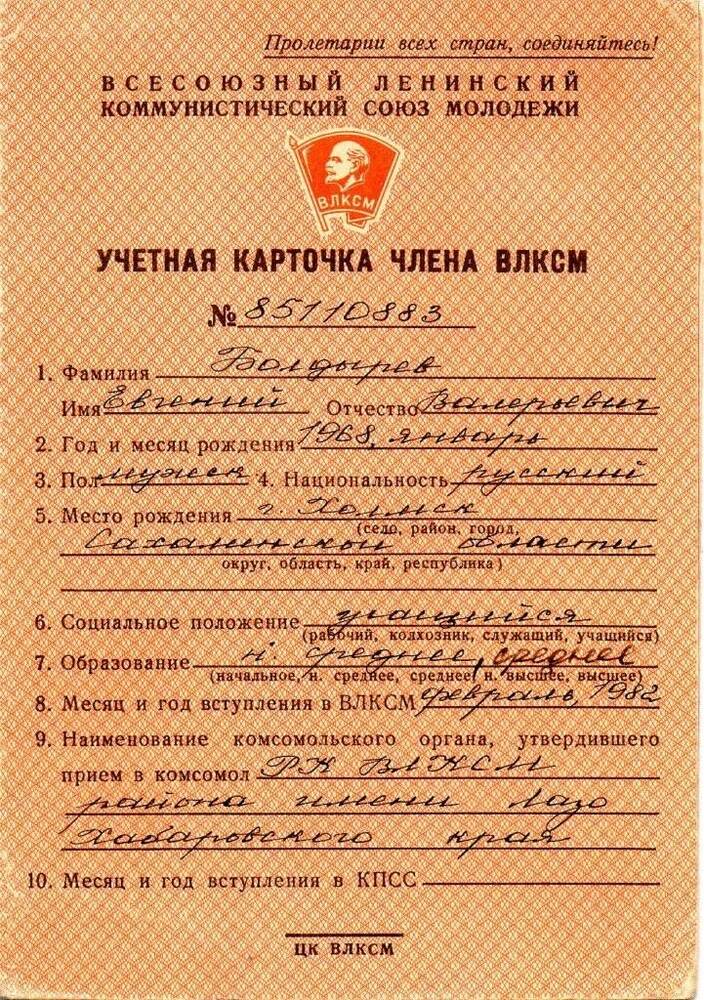 Пролетарии всех стран, соединяйтесь!
ВСЕСОЮЗНЫЙ ЛЕНИНСКИЙ
КОММУНИСТИЧЕСКИЙ СОЮЗ МОЛОДЕЖИ
ВЛКСМ
УЧЕТНАЯ КАРТОЧКА ЧЛЕНА ВЛКСМ
№ 85110883
1. Фамилия Болдырев
Имя Евгений Отчество Валерьевич
2. Год и месяц рождения 1968, январь
3. Пол мужск 4. Национальность русский
5. Место рождения г. Холмск
(село, район, город,
Сахалинской области
округ, область, край, республика)
6. Социальное положение учащийся
(рабочий, колхозник, служащий, учащийся)
7. Образование н. среднее, среднее
(начальное, н. среднее, среднее, н. высшее, высшее)
8. Месяц и год вступления в ВЛКСМ февраль, 1982
9. Наименование комсомольского органа, утвердившего
прием в комсомол РК ВЛКСМ
района имени Лазо
Хабаровского края
10. Месяц и год вступления в КПСС
ЦК ВЛКСМ